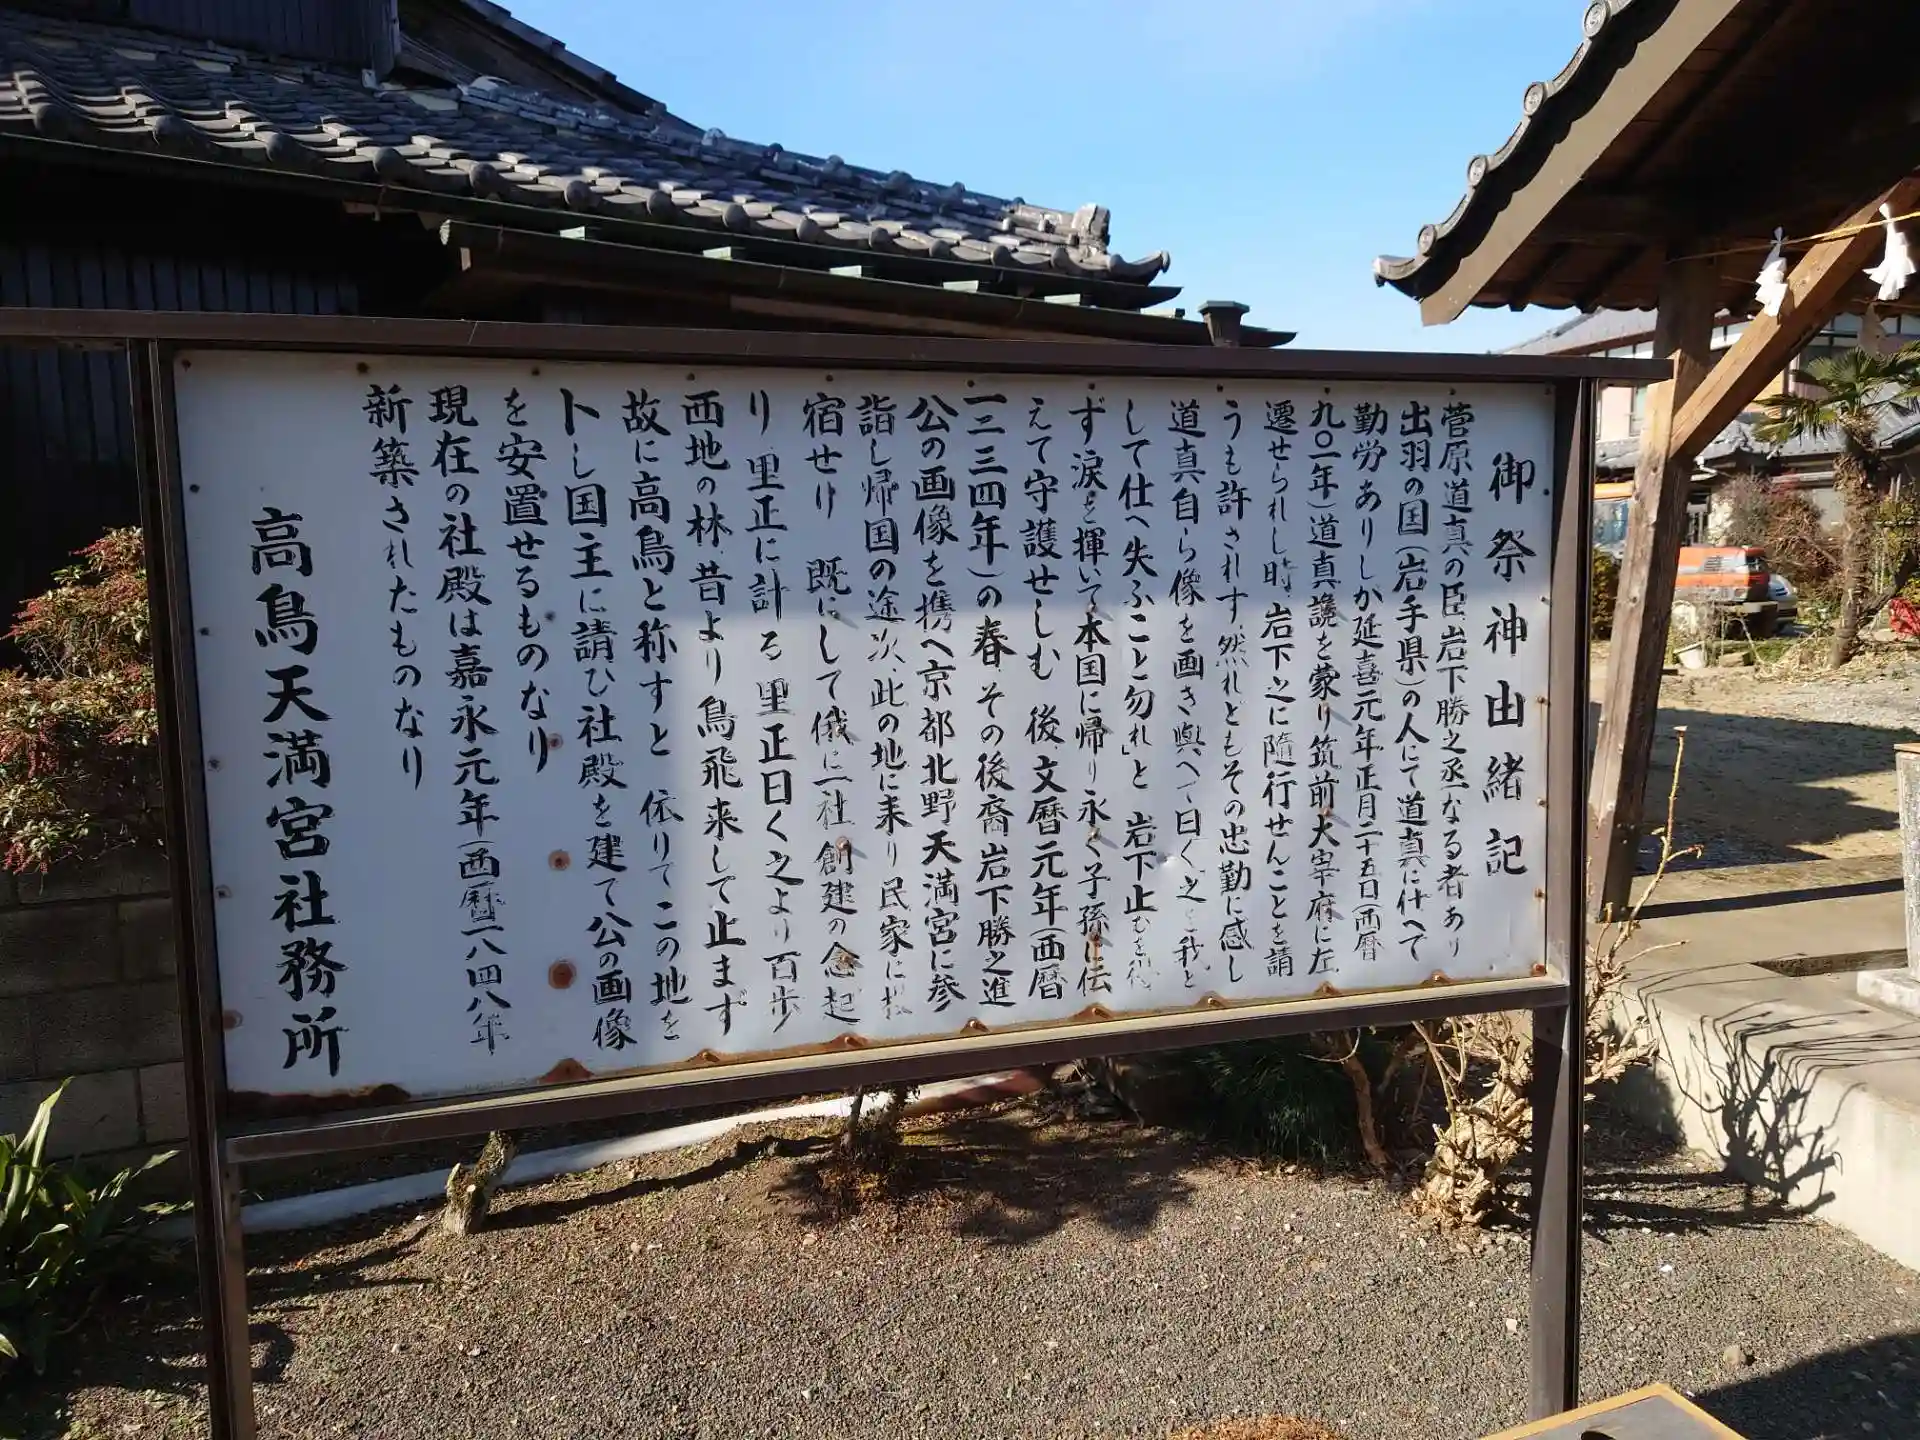 御祭神由緒記
菅原道真の臣、岩下勝之丞なる者あり
出羽の国(岩手県)の人にて道真に仕へて
勤労ありしか延喜元年正月二十五日(西暦
九〇一年)道真讒を蒙り筑前大宰府に左
遷せられし時、岩下之に隨行せんことを請
うも許されす、然れどもその忠勤に感し
道真自ら像を画き與へて曰く「之を我と
して仕へ失ふこと勿れ」と 岩下止むを得
ず涙を揮いて本国に帰り永く子孫に伝
えて守護せしむ 後、文暦元年(西暦
一二三四年)の春、その後裔岩下勝之進
公の画像を携へ京都北野天満宮に参
詣し帰国の途次、此の地に来り民家に投
宿せり 既にして俄に一社創建の念起
り、里正に計る 里正曰く之より百歩
西地の林、昔より鳥飛来して止まず
故に高鳥と称すと 依りてこの地を
卜し国主に請ひ社殿を建て公の画像
を安置せるものなり
現在の社殿は嘉永元年(西暦一八四八年
新築されたものなり
高鳥天満宮社務所